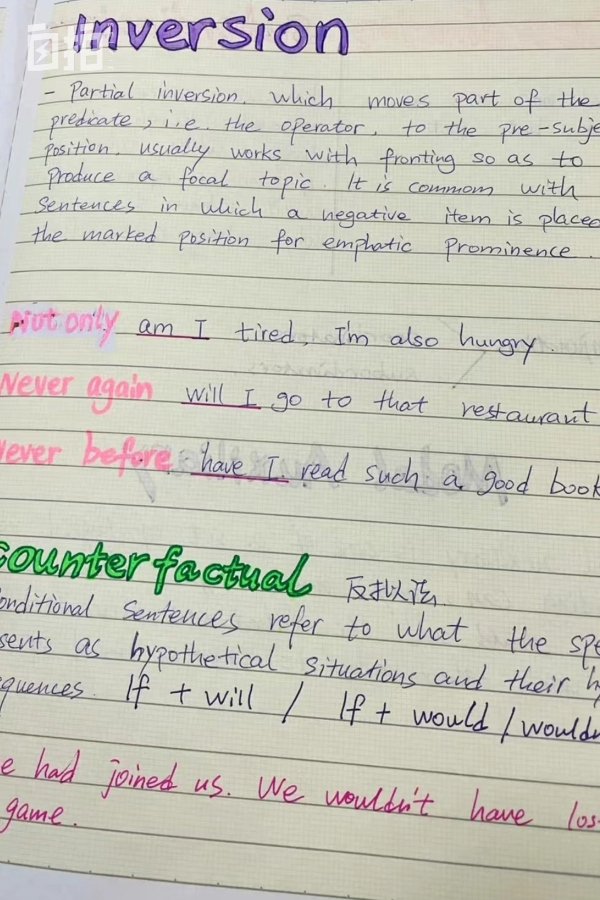 自拍
Inversion
- Partial inversion, which moves part of the
predicate, i.e. the operator, to the pre-subje
position, usually works with fronting so as to
produce a focal topic. It is commom with
sentences in which a negative item is placed
the marked position for emphatic prominence.
Not only am I tired, I'm also hungry.
Never again will I go to that restaurant
Never before have I read such a good book
counterfactual
onditional sentences refer to what the spe
sents as hypothetical situations and their h
quences. If + will / If + would / wouldn
e had joined us. We wouldn't have los
game.